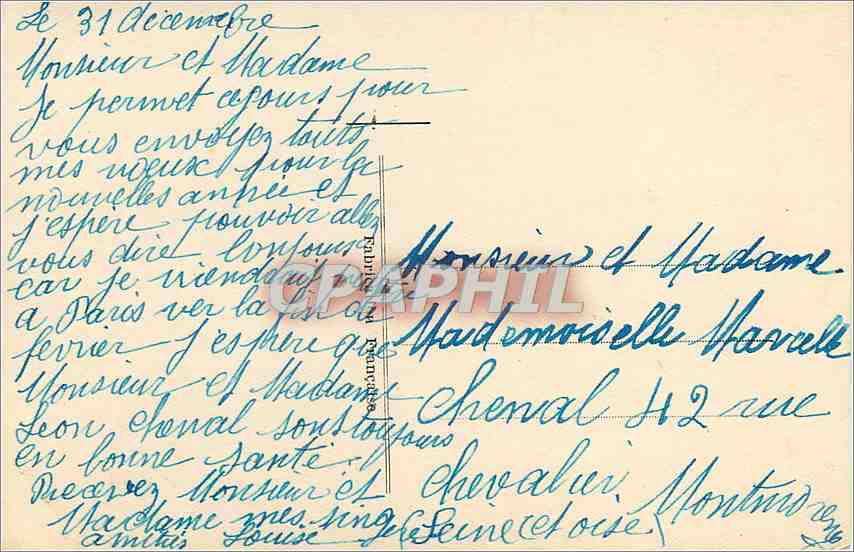 Le 31 décembre
Monsieur et Madame
Je permet ce jours pour
vous envoyez touts
mes voeux pour la
nouvelles année et
j'espère pouvoir allez
vous dire bonjours
car je viendrait
a Paris ver la fin de
fevrier j'espère que
Monsieur et Madame
Leon Cheval sont toujours
en bonne santé
Recevez Monsieur et
Madame mes
amitiés Louise
Fabrication Française
CPAPHIL
Monsieur et Madame
Mademoiselle Marcelle
Cheval 42 rue
Chevalier Montmorency
(Seine et oise)